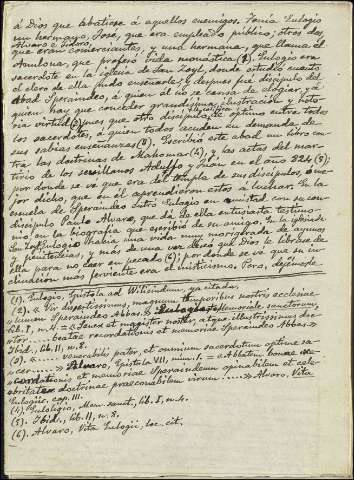 á Dios que rebatiese á aquellos enemigos. Tenía Eulogio
un hermano, José, que era empleado público; otros dos,
Alvaro e Isidoro,
que eran comerciantes, y una hermana, que llama él
Anulona, que profesó vida monástica (1). Eulogio era
sacerdote en la iglesia de San Zoyl, donde estudió cuanto
el clero de ella pudo enseñarle; y después fué discípulo del
Abad Speraindeo, á quien él no se cansa de elogiar, y á
quien hay que conceder grandísima ilustración y noto
ria virtud (2) pues que otro discípulo, le optimo entre todos
los sacerdotes, á quien todos acuden en demanda de
sus sabias enseñanzas (3). Escribió este abad un libro con-
tra las doctrinas de Mahoma (4), y las actas del mar-
tirio de los sevillanos Adolfo y Juan en el año 824 (5);
por donde se ve que era del temple de sus discípulos, ó me-
jor dicho, que en él aprendieron estos á luchar. En la
escuela de Speraindeo entró Eulogio en amistad con su con-
discípulo Paulo Alvaro, que da de ella entusiasta testimo-
nio en la biografía que escribió de su amigo. En la
Eulogio había una vida muy mortificada de ayunos
y penitencias, y más de una vez desea que Dios le librase de
ella para no caer en pecado (6); por donde se ve que su in-
clinación más ferviente era el misticismo. Pero,
(1). Eulogio, Epistola ad Wiliesindum, ya citada.
(2). « Vir disertissimus, magnum temporibus nostris ecclesiae
lumen Speraindeo Abbas.» Eulogio, Memoriale sanctorum,
lib. I, n. 4. = « Senex et magister noster, atque illustrissimus doc-
«tor..... beatae recordationis et memoriae Speraindeo Abbas.»
Ibid., lib. II, n. 8.
(3). «..... venerabilis pater, et omnium sacerdotum optime sa-
«cer.....» Alvaro, Epístola VII, núm. 1. = « Abbatem bonae re-
«cordationis et memoriae Speraindeum opinabilem et cele-
«britate doctrinae praeconabilem virum.....» Alvaro, Vita
Eulogii, cap. III.
(4). Eulogio, Mem. sanct., lib. I, n. 4.
(5). Ibid., lib. II, n. 8.
(6). Alvaro, Vita Eulogii, loc. cit.